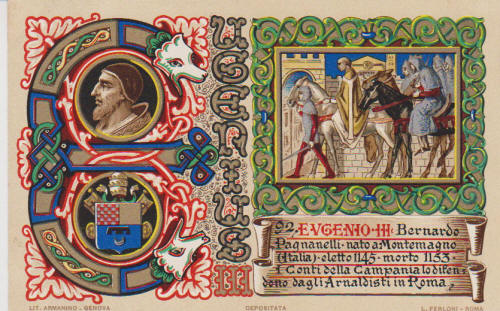 EUGENIUS
III
92. EVGENIO III Bernardo
Pagnanelli-nato a Montemagno
(Italia)-eletto 1145-morto 1153
I Conti della Campania lo difen=
dono dagli Arnaldisti in Roma.
LIT. ARMANINO - GENOVA
DEPOSITATA
L. FERLONI - ROMA